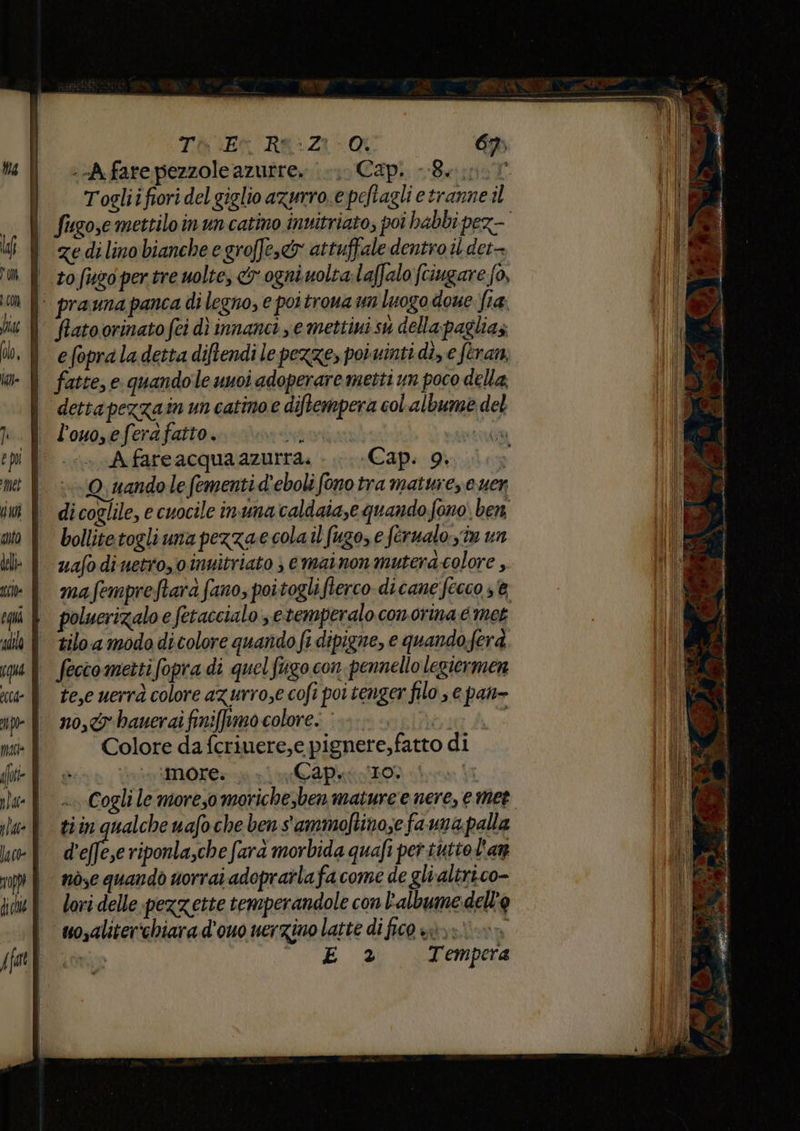 T E R Z O. 67
A fare pezzole azurre. Cap. 8.
Togli i fiori del giglio azurro e pestagli e tranne il
sugo,e mettilo in un catino inuitriato, poi habbi pez-
ze di lino bianche e grosse,& attuffale dentro il det-
to sugo per tre uolte, & ogni uolta lassalo sciugare so,
pra una panca di legno, e poi troua un luogo doue sia
stato orinato sei dì innanci, e mettini sù della paglia,
e sopra la detta distendi le pezze, poi uinti dì, e seran,
fatte, e quando le uuoi adoperare metti un poco della,
detta pezza in un catino e distempera col albume del
l'ouo, e serà fatto.
A fare acqua azurra. Cap. 9.
Quando le sementi d'eboli sono tra mature, e uer
di coglile, e cuocile in una caldaia,e quando sono ben
bollite togli una pezza e cola il sugo, e serualo in un
uaso di uetro, o inuitriato, e mai non muterà colore,
ma sempre starà sano, poi togli sterco di cane secco, e
poluerizalo e setaccialo, e temperalo con orina e met
tilo a modo di colore quando si dipigne, e quando serà
secco metti sopra di quel sugo con pennello legiermen
te,e uerrà colore azurro,e cosi poi tenger filo, e pan-
no,& hauerai finissimo colore.
Colore da scriuere,e pignere,fatto di
more. Cap. 10.
Cogli le more,o moriche,ben mature e nere, e met
ti in qualche uaso che ben s'ammostino,e fa una palla
d'esse,e riponla,che sarà morbida quasi per tutto l'an
nò,e quando uorrai adoprarla fa come de gli altri co-
lori delle pezzette temperandole con l'albume dell'o
uo,aliter chiara d'ouo uerzino latte di fico
E 2 Tempera